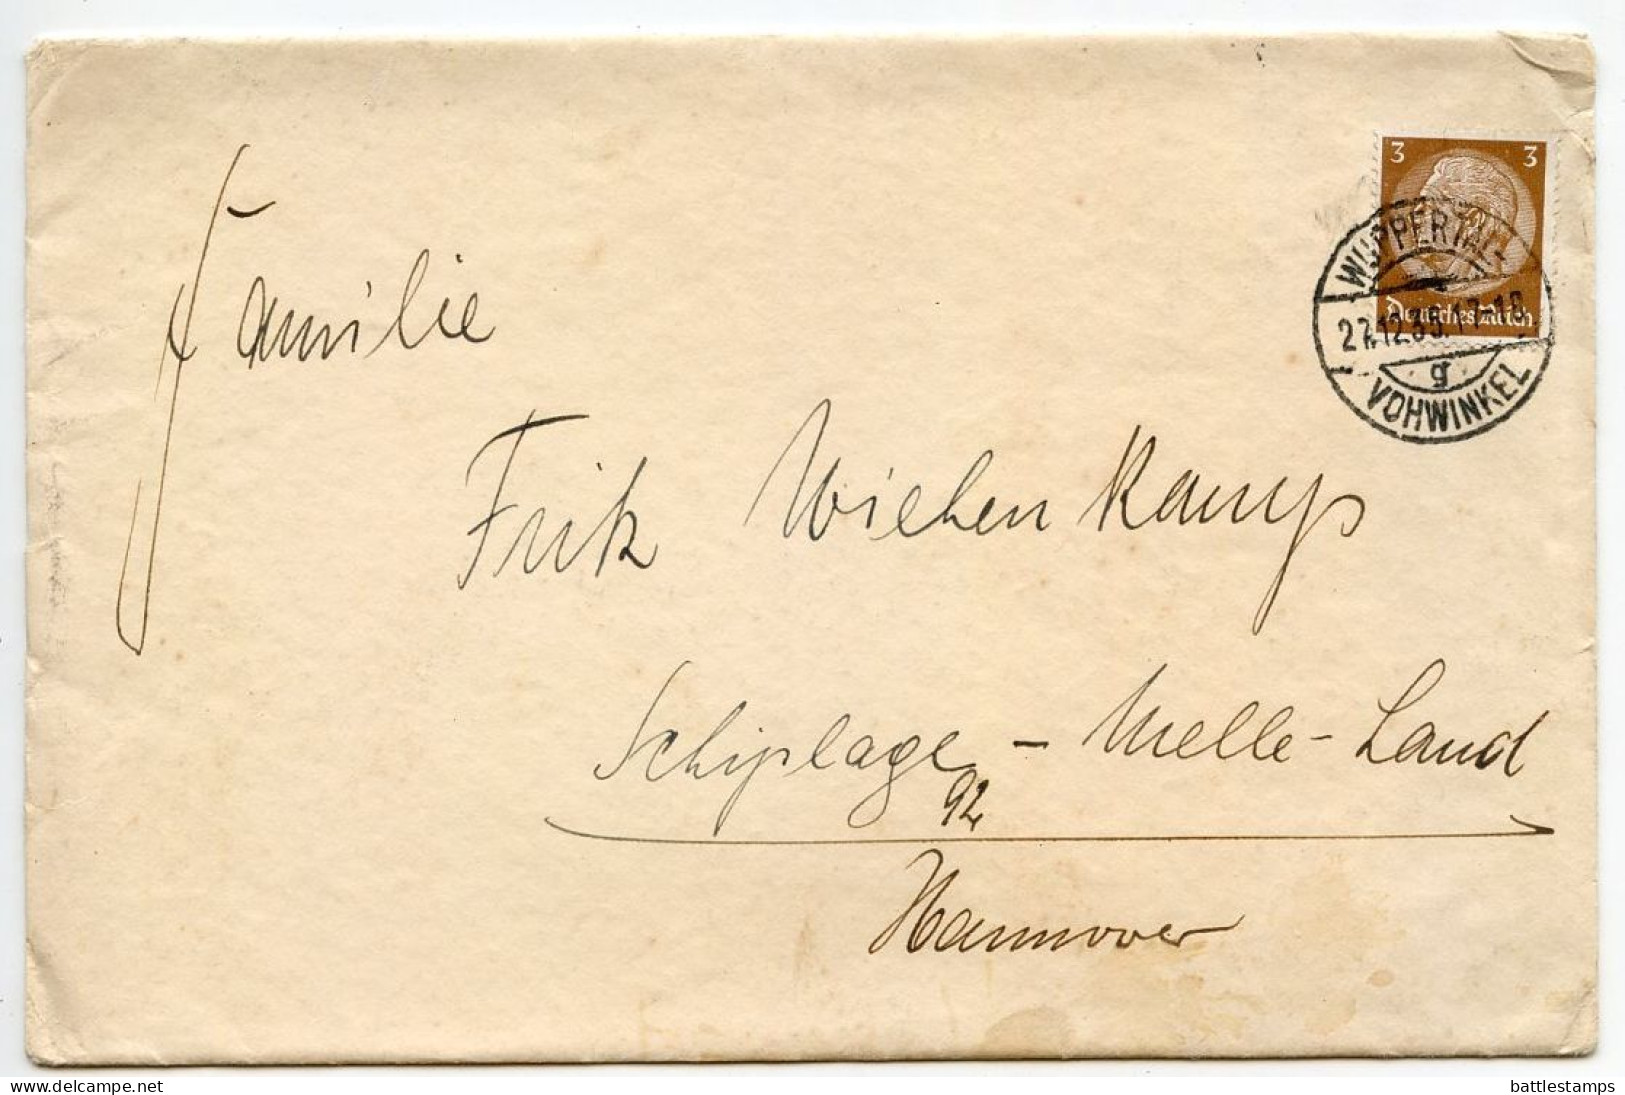 3 3
Deutsches Reich
WUPPERTAL-
27.12.35.17-18
g
VOHWINKEL
Familie
Fritz Wiehenkamp
Schiplage - Melle-Land
92
Hannover
delcampe.net
battlestamps